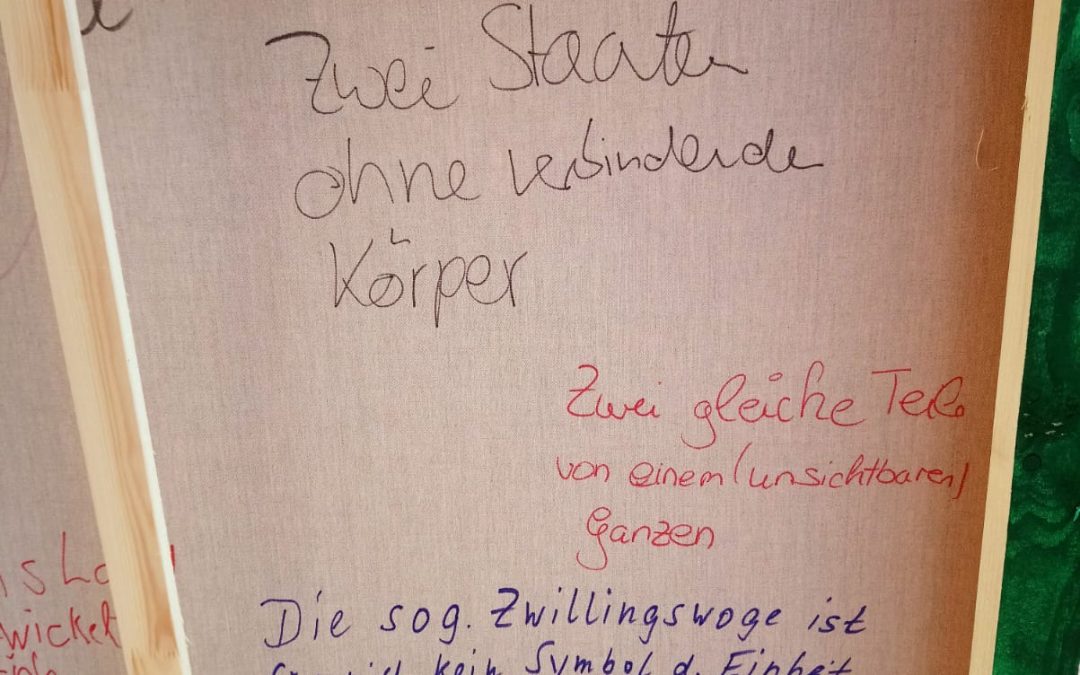 Zwei Staaten
ohne verbindende
Körper
Zwei gleiche Teile
von einem (unsichtbaren)
Ganzen
Die sog. Zwillingswoge ist
kein Symbol d. Einheit
wickelt